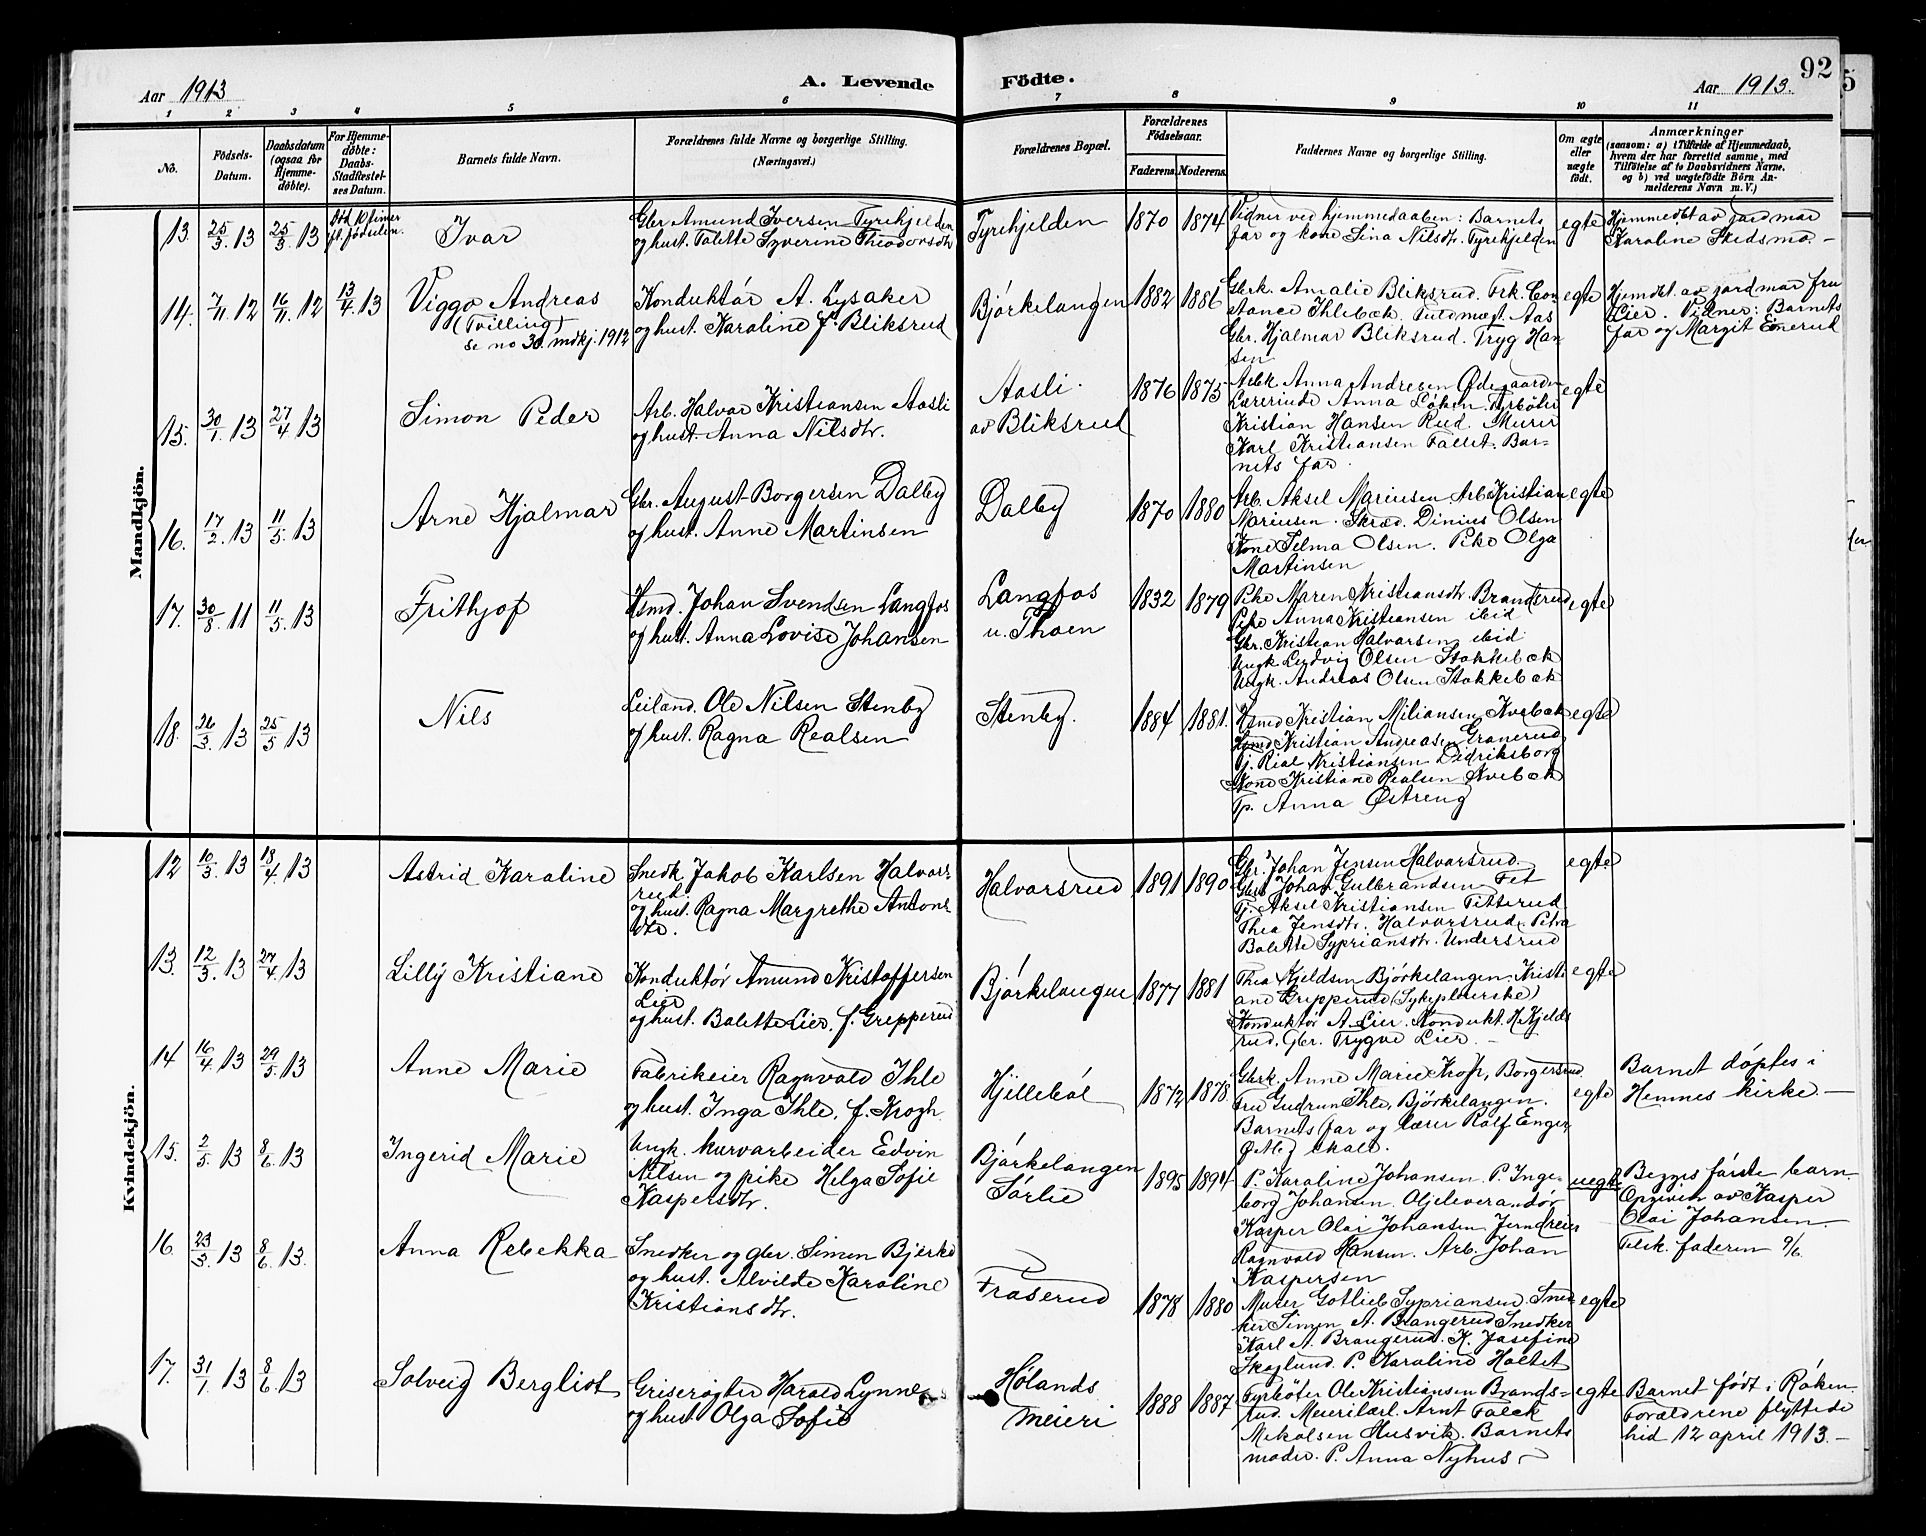 92
5
Aar 1913
A. Levende
Födte.
Aar 1913.
1
2
3
4
5
6
7
8
9
10
11
No.
Födsels-
Datum.
Daabsdatum
(ogsaa for
Hjemme-
döbte).
For Hjemme-
döbte:
Daabs-
Stadfæstel-
ses Datum.
Barnets fulde Navn.
Forældrenes fulde Navne og borgerlige Stilling.
(Næringsvei.)
Forældrenes Bopæl.
Forældrenes
Födselsaar.
Faderens
Moderens.
Faddernes Navne og borgerlige Stilling.
Om ægte
eller
uægte
født.
Anmærkninger
(saasom: a) i Tilfælde af Hjemmedaab,
hvem der har forrettet samme, med
Tilföielse af to Daabsvidners Navne,
og b) ved uægtefödte Börn An-
melderens Navn m. V.)
Mandkjön.
13.
25/3. 13
25/3 13
Död 10 timer
ft. födselen.
Ivar
Gbr Amund Iversen Tyrehjelden
og hust. Talette Syverine Theodorsdtr
Tyrehjelden
1870
1874
Vidner ved hjemmedaaben: Barnets
far og kone Lina Nilsdtr. Tyrehjelden
egte
Hjemmedbt av jordmor
Karoline Skedsmo. –
14.
7/11. 12
16/11. 12
13/4. 13
Viggo Andreas
(Tvilling)
se no 30. mdkj. 1912
Konduktör A. Lysaker
og hust. Karoline f. Bliksrud
Björkelangen
1882
1886
Gbrk. Amalie Bliksrud. Frk. Con
stance Ihlebæk. Fuldmægt. Aas
Gbr. Hjalmar Bliksrud. Tryg Han
sen
egte
Hjemdbt. av jordmor fru
Lier. Vidner: Barnets
far og Margit Enerud
15.
30/1. 13
27/4 13
Simon Peder
Arb. Halvor Kristiansen Aasli
og hust. Anna Nilsdtr.
Aasli.
av Bliksrud
1876
1875
Arbk. Anna Andresen Ødegaarden
Lærerinde Anna Löken. Fyrböter
Kristian Hansen Rud. Murer
Karl Kristiansen Fallet. Bar-
nets far.
egte
16.
17/2. 13
11/5. 13
Arne Hjalmar
Gbr. August Borgersen Dalby
og hust. Anne Martinsen
Dalby
1870
1880
Arb. Aksel Mariusen Arb. Kristian
Mariusen. Skræd. Dinius Olsen
Kone Selma Olsen. Pike Olga
Martinsen
egte
17.
30/8. 11
11/5. 13
Frithjof
Hsmd. Johan Svendsen Langfos
og hust. Anna Lovise Johansen
Langfos
u. Thoen
1832
1879
Pike Maren Kristiansdtr. Brandsrud
Pike Anna Kristiansen ibid
Gbr. Kristian Halvorsen ibid
Ungk. Ludvig Olsen Stokkebæk
Ungk. Andreas Olsen Stokkebæk
egte
18.
26/3. 13
25/5 13
Nils
Leiland. Ole Nilsen Stenby
og hust. Ragna Realsen
Stenby.
1884
1881.
Hsmd Kristian Miliansen Kvebæk
Hsmd Kristian Andreasen Granerud
Tj. Rial Kristiansen Didriksborg
Kone Kristiane Realsen Kvebæk
Tp. Anna Østreng
egte
Kvindekjön.
12
10/3. 13
18/4. 13
Astrid Karoline
Snedk. Jakob Karlsen Halvors-
rud.
og hust. Ragna Margrethe Antons-
dtr.
Halvorsrud
1891
1890
Gbr. Johan Jensen Halvorsrud.
Gbr. Johan Gulbrandsen Fet
Tj. Aksel Kristiansen Titterud
Thea Jensdtr. Halvorsrud. Petra
Bolette Sypriansdtr. Undersrud
egte
13.
12/3. 13
27/4. 13
Lilly Kristiane
Konduktör Amund Kristoffersen
Lier
og hust. Bolette Lier. f. Grepperud
Björkelangen
1877
1881
Thea Kjeldsen Björkelangen. Kristi
ane Grepperud (Sykepleierske)
Konduktör A. Lier. Kondukt. H. Kjelds
rud. Gbr. Trygve Lier. –
egte
14
16/4. 13
29/5. 13
Anne Marie
Fabrikeier Ragnvald Ihle
og hust. Inga Ihle, f. Krogh
Hjelleböl
1872
1878
Gbrk. Anne Marie Krogh, Borgersrud
Fru Gudrun Ihle, Björkelangen.
Barnets far og lærer Rolf Enger
skole.
egte
Barnet döptes i
Hemnes kirke. –
15.
2/5. 13
8/6. 13
Ingerid Marie
Ungk. kurvarbeider Edvin
Nilsen og pike Helga Sofie
Kaspersdtr.
Björkelangen
Sörlie
1895
1894
P. Karoline Johansen. P. Inge-
borg Johansen. Oljeleverandör
Kasper Olai Johansen. Jerndreier
Ragnvald Hansen. Arb. Johan
Kaspersen
uegte
Begges förste barn.
Opgiven av Kasper
Olai Johansen.
faderen 9/6.
16.
23/3. 13
8/6. 13.
Anna Rebekka
Snedker og gbr. Simen Bjerke
og hust. Alvilde Karoline
Kristiansdtr.
Fraserud
1878
1880
Murer Gotlieb Sypriansen. Sned
ker Simen A. Brangerud Snedker
Karl A. Brangerud. K. Josefine
Skoglund. P. Karoline Holtet
egte
17.
31/1. 13
8/6. 13
Solveig Bergliot
Griserögter Harald Lynne
og hust. Olga Sofie
Hölands
meieri
1888
1887
Fyrböter Ole Kristiansen Brands-
rud. Meierilærl. Arnt Falck
Mikalsen Husvik. Barnets
moder. P. Anna Nyhus –
egte
Barnet födt i Röken.
Forældrene flyttede
hid 12 april 1913. –